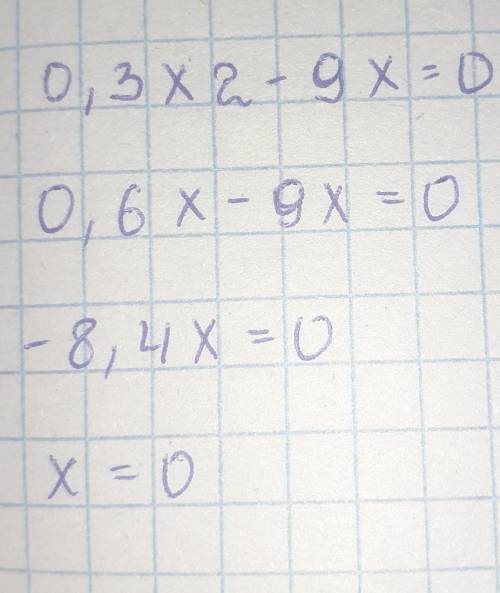 0,3x2-9x=0
0,6x-9x=0
-8,4x=0
x=0